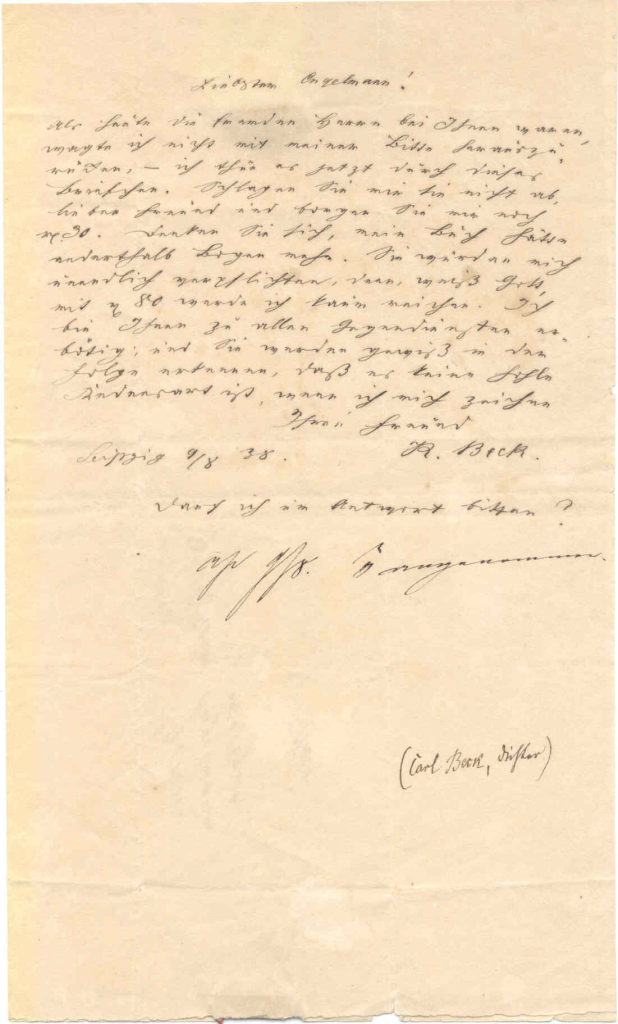 Liebster Engelmann!
Als heute die fremden Herrn bei Ihnen waren,
wagte ich nicht mit meiner Bitte herauszu-
rücken, – ich thue es jetzt durch dieses
Briefchen. Schlagen Sie mir sie nicht ab,
lieber Freund und borgen Sie mir noch
30. Denken Sie sich, mein Buch hätte
anderthalb Bogen mehr. Sie würden mich
unendlich verpflichten, denn, weiß Gott,
mit 80 werde ich kaum reichen. Ich
bin Ihnen zu allen Gegendiensten er-
bötig, und Sie werden gewiß in der
Folge erkennen, daß es keine hohle
Redensart ist, wenn ich mich zeichne
Ihr Freund
Leipzig 9/8 38. K. Beck.
Darf ich um Antwort bitten?
angenommen.
(Carl Beck, Dichter)